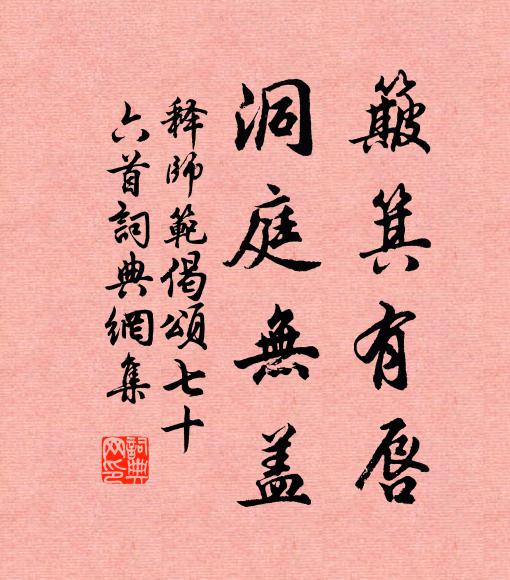 簸箕有唇
洞庭無盖
释師範偈頌七十
六首詞典網集
詞典網印